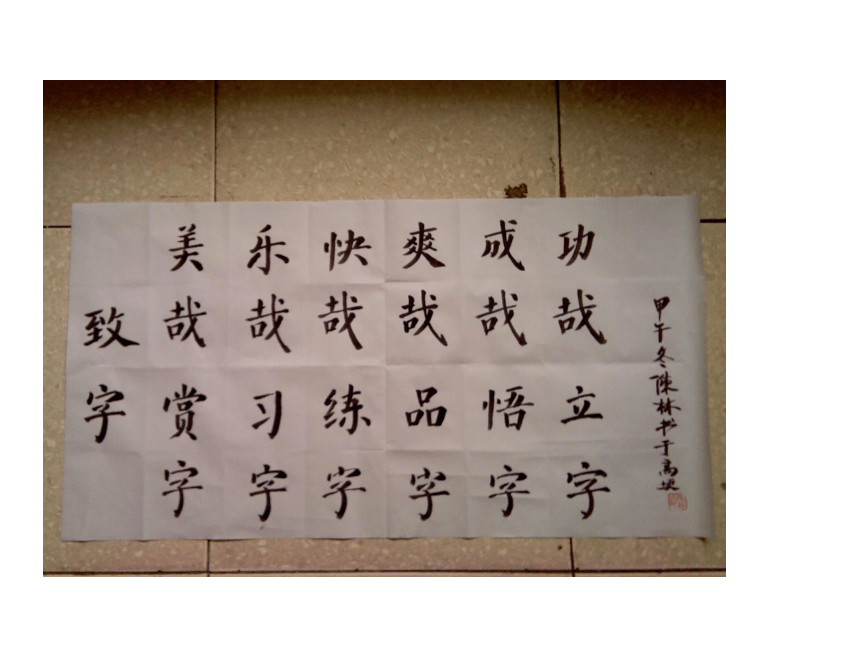 致字
美哉赏字
乐哉习字
快哉练字
爽哉品字
成哉悟字
功哉立字
甲午冬陈林书于高安